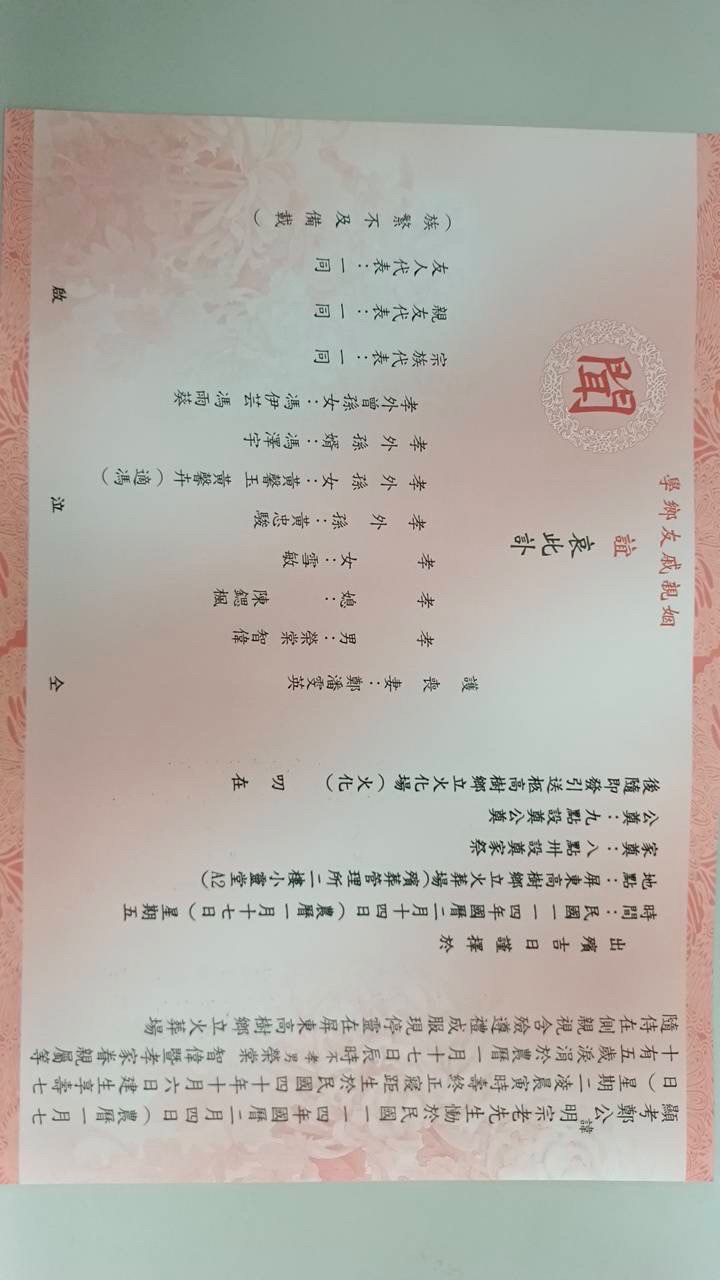 顯考鄭公諱明宗老先生慟於民國一一四年國曆二月四日（農曆一月七
日）星期二凌晨寅時壽終正寢距生於民國四十年十月六日建生享壽七
十有五歲涓淚於農曆一月十七日辰時不孝男榮棠智偉暨孝家眷親屬等
隨侍在側親視含殮遵禮成服現停靈在屏東高樹鄉立火葬場
出殯吉日謹擇於
時間：民國一一四年國曆二月十四日（農曆一月十七日）星期五
地點：屏東高樹鄉立火葬場（殯葬管理所二樓小靈堂A2）
家奠：八點卅設奠家祭
公奠：九點設奠公奠
後隨即發引送柩高樹鄉立火化場（火化） 叨在
姻親戚友鄉學
誼
哀此訃
聞
護喪妻：鄭潘雯英
孝男：榮棠 智偉
孝媳：陳鍶楓
孝女：雪敏
孝外孫：黃忠駿
孝外孫女：黃馨玉 黃馨卉（適馮）
孝外孫婿：馮澤宇
孝外曾孫女：馮伊芸 馮雨葵
宗族代表：一同
親友代表：一同
友人代表：一同
（族繁不及備載）
仝 泣 啟